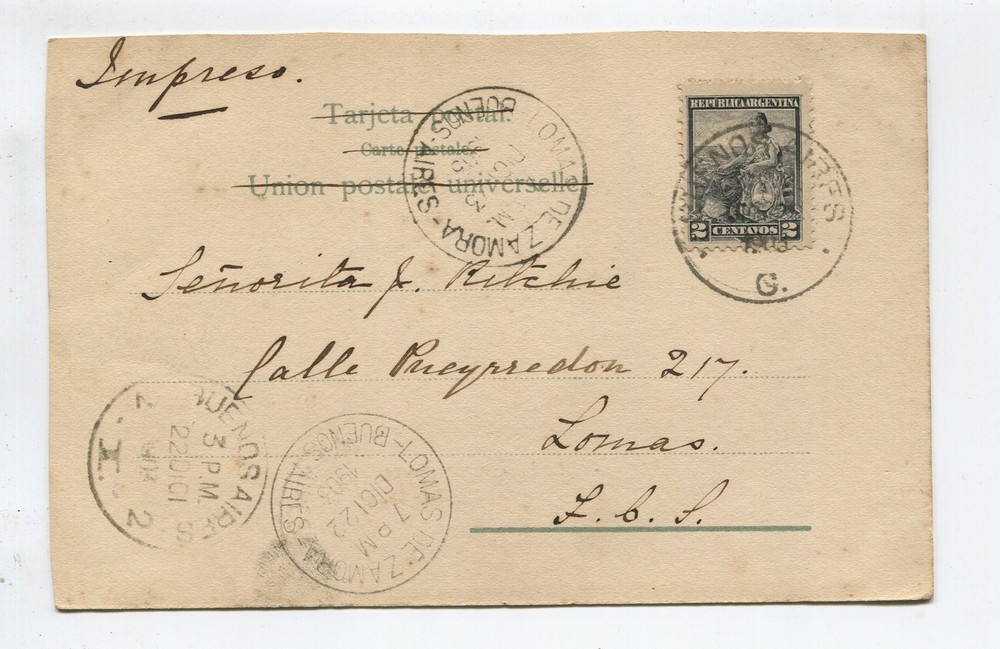 Impreso.
Tarjeta postal.
Carte postale
Union postale universelle
REPÚBLICA ARGENTINA
2 CENTAVOS 2
BUENOS AIRES
1903
G.
LOMAS DE ZAMORA - BUENOS AIRES
Señorita J. Ritchie
Calle Pueyrredon 217.
Lomas.
F. C. S.
BUENOS AIRES
3 P.M.
22 DICI
1903
2
LOMAS DE ZAMORA - BUENOS AIRES
7 PM
DICI 22
1903